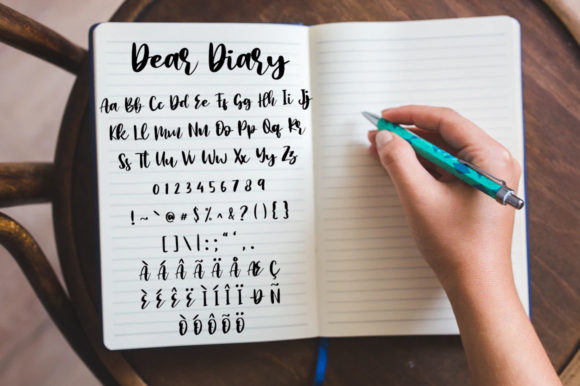 Dear Diary
Aa Bb Cc Dd Ee Ff Gg Hh Ii Jj
Kk Ll Mm Nn Oo Pp Qq Rr
Ss Tt Uu Vv Ww Xx Yy Zz
0 1 2 3 4 5 6 7 8 9
! ~ ` @ # $ % ^ & ? ( ) { }
[ ] \ | : ; " ' , .
À Á Â Ã Ä Å Æ Ç
È É Ê Ë Ì Í Î Ï Ð Ñ
Ò Ó Ô Õ Ö